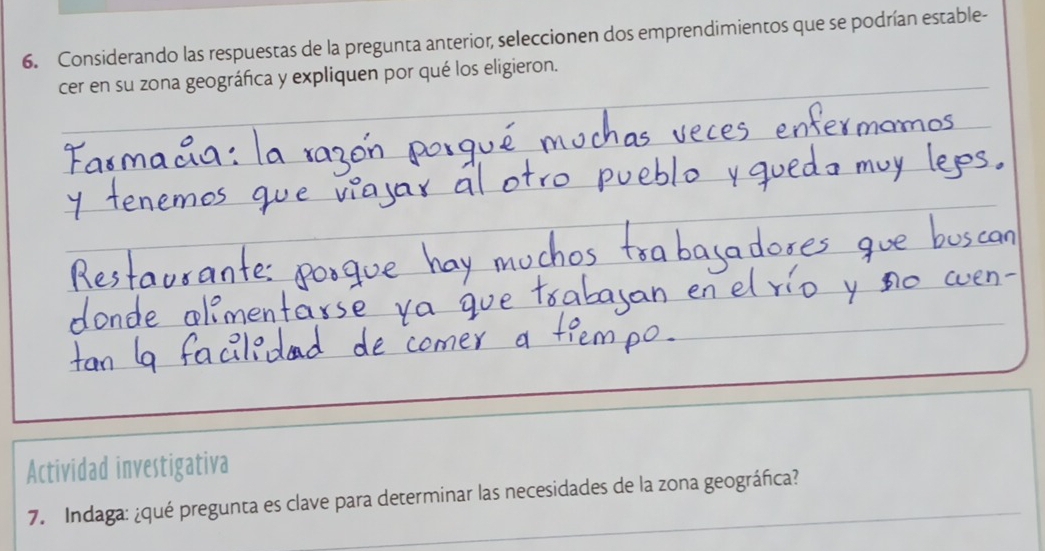 6. Considerando las respuestas de la pregunta anterior, seleccionen dos emprendimientos que se podrían estable-
cer en su zona geográfica y expliquen por qué los eligieron.
Farmacia: la razón porqué muchas veces enfermamos
y tenemos que viajar al otro pueblo y queda muy lejos.
Restaurante: porque hay muchos trabajadores que buscan
donde alimentarse ya que trabajan en el río y no cuen-
tan la facilidad de comer a tiempo.
Actividad investigativa
7. Indaga: ¿qué pregunta es clave para determinar las necesidades de la zona geográfica?